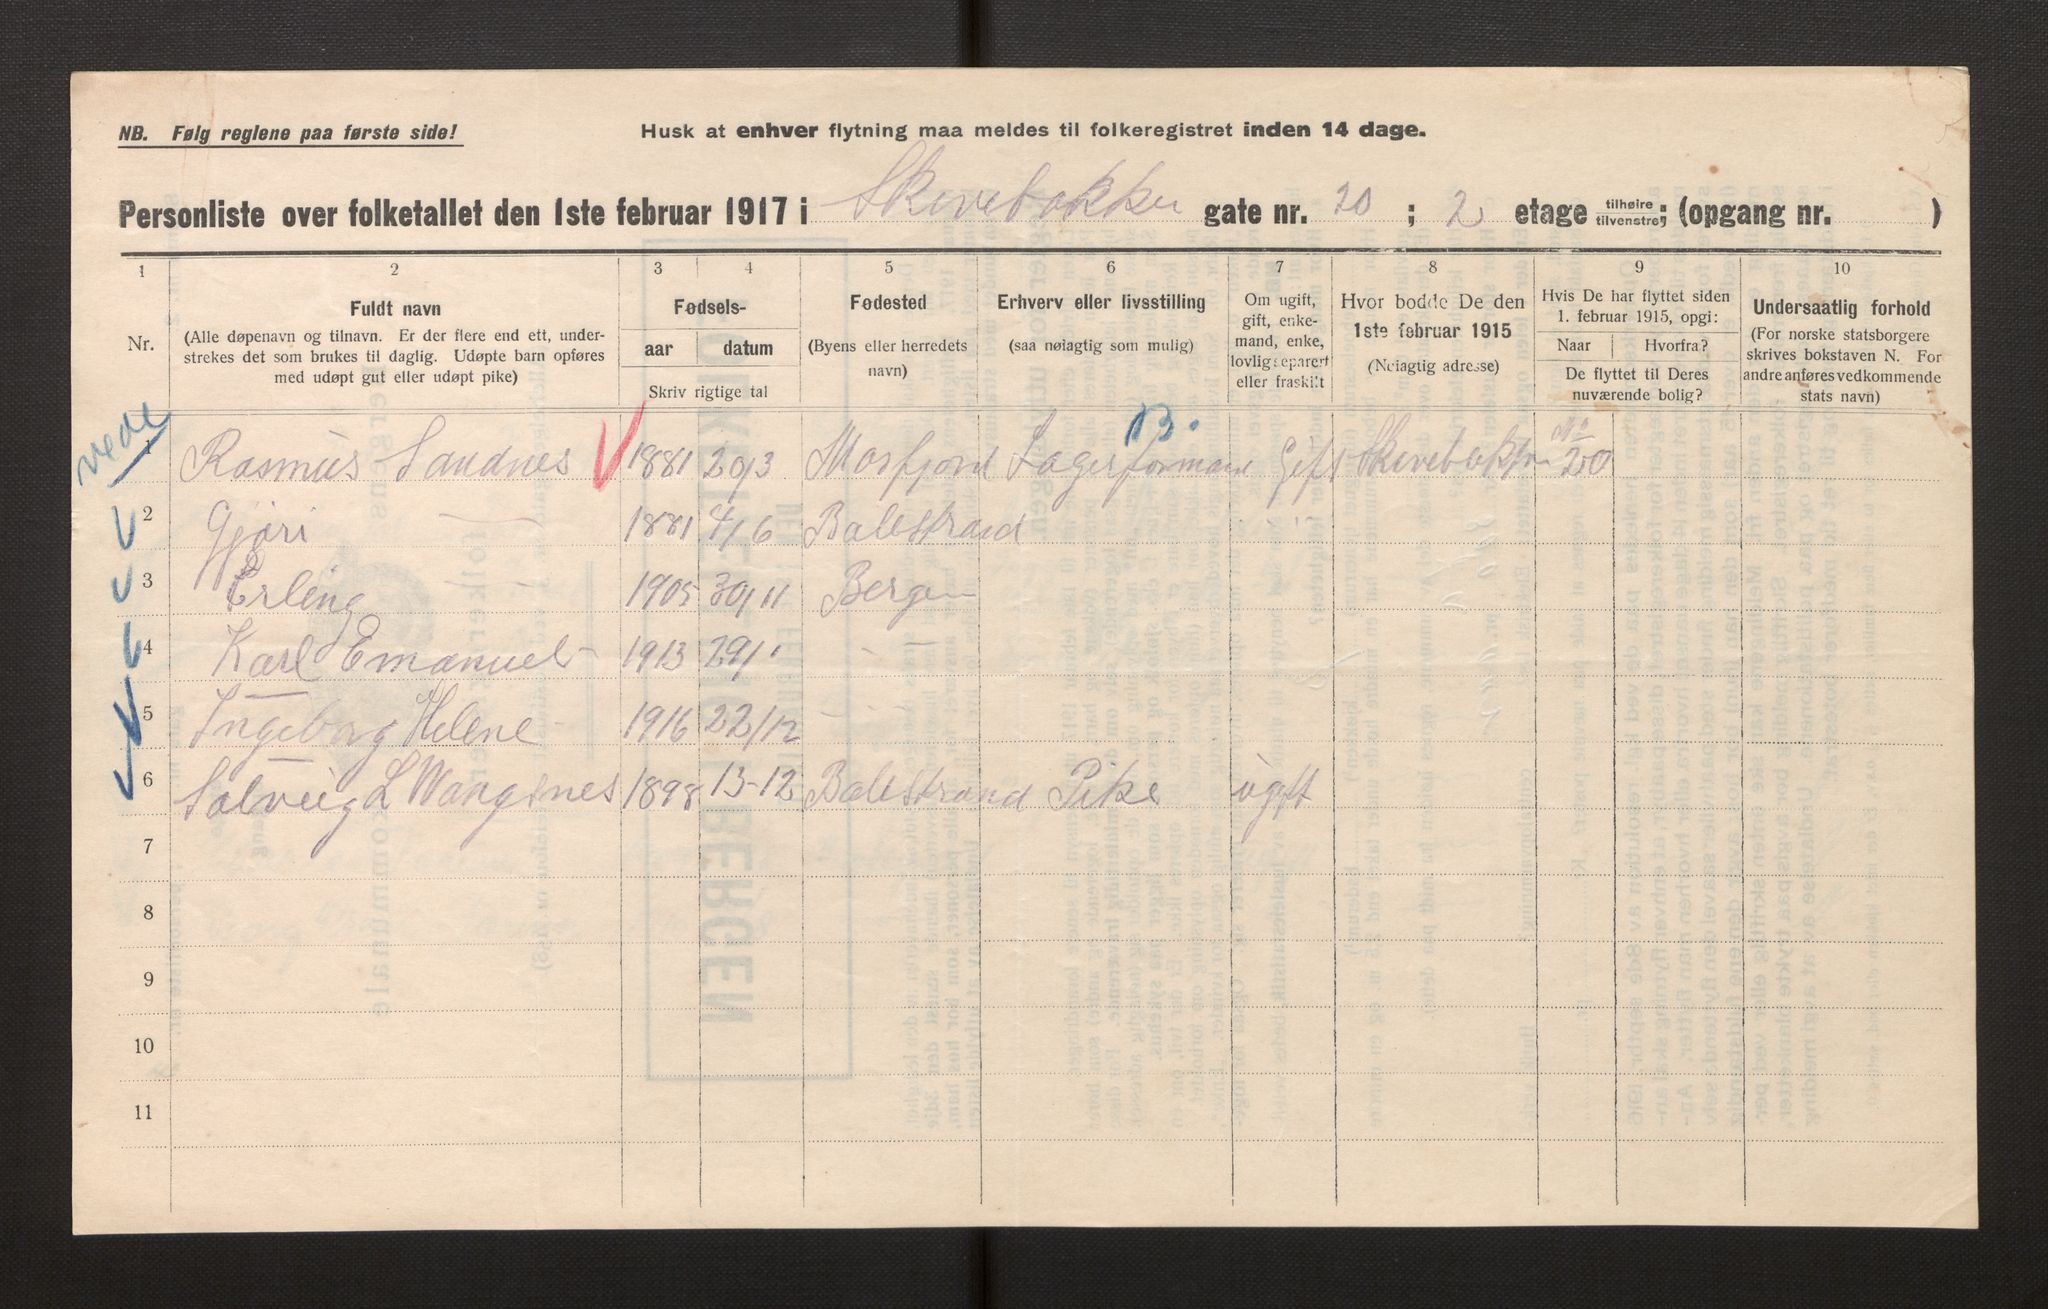 NB. Følg reglene paa første side!
Husk at enhver flytning maa meldes til folkeregistret inden 14 dage.
Personliste over folketallet den 1ste februar 1917 i Skivebakken gate nr. 20 ; 2 etage tilhøire tilvenstre; (opgang nr. )
1 2 3 4 5 6 7 8 9 10
Nr.
Fuldt navn
(Alle døpenavn og tilnavn. Er der flere end ett, under-
strekes det som brukes til daglig. Udøpte barn opføres
med udøpt gut eller udøpt pike)
Fødsels-
aar datum
Skriv rigtige tal
Fødested
(Byens eller herredets
navn)
Erhverv eller livsstilling
(saa nøiagtig som mulig)
Om ugift,
gift, enke-
mand, enke,
lovlig separert
eller fraskilt
Hvor bodde De den
1ste februar 1915
(Nøiagtig adresse)
Hvis De har flyttet siden
1. februar 1915, opgi:
Naar Hvorfra?
De flyttet til Deres
nuværende bolig?
Undersaatlig forhold
(For norske statsborgere
skrives bokstaven N. For
andre anføres vedkommende
stats navn)
vede
B.
1 Rasmus Sandnes 1881 20/3 Masfjord Lagerformand Gift Skivebakken No 20
2 Gjøri — 1881 4/6 Balestrand
3 Erling 1905 30/11 Bergen
4 Karl Emanuel - 1913 29/1 - —
5 Ingeborg Helene - 1916 22/12 - - -
6 Solveig L Wangsnes 1898 13-12 Balestrand Pike ugift
7
8
9
10
11